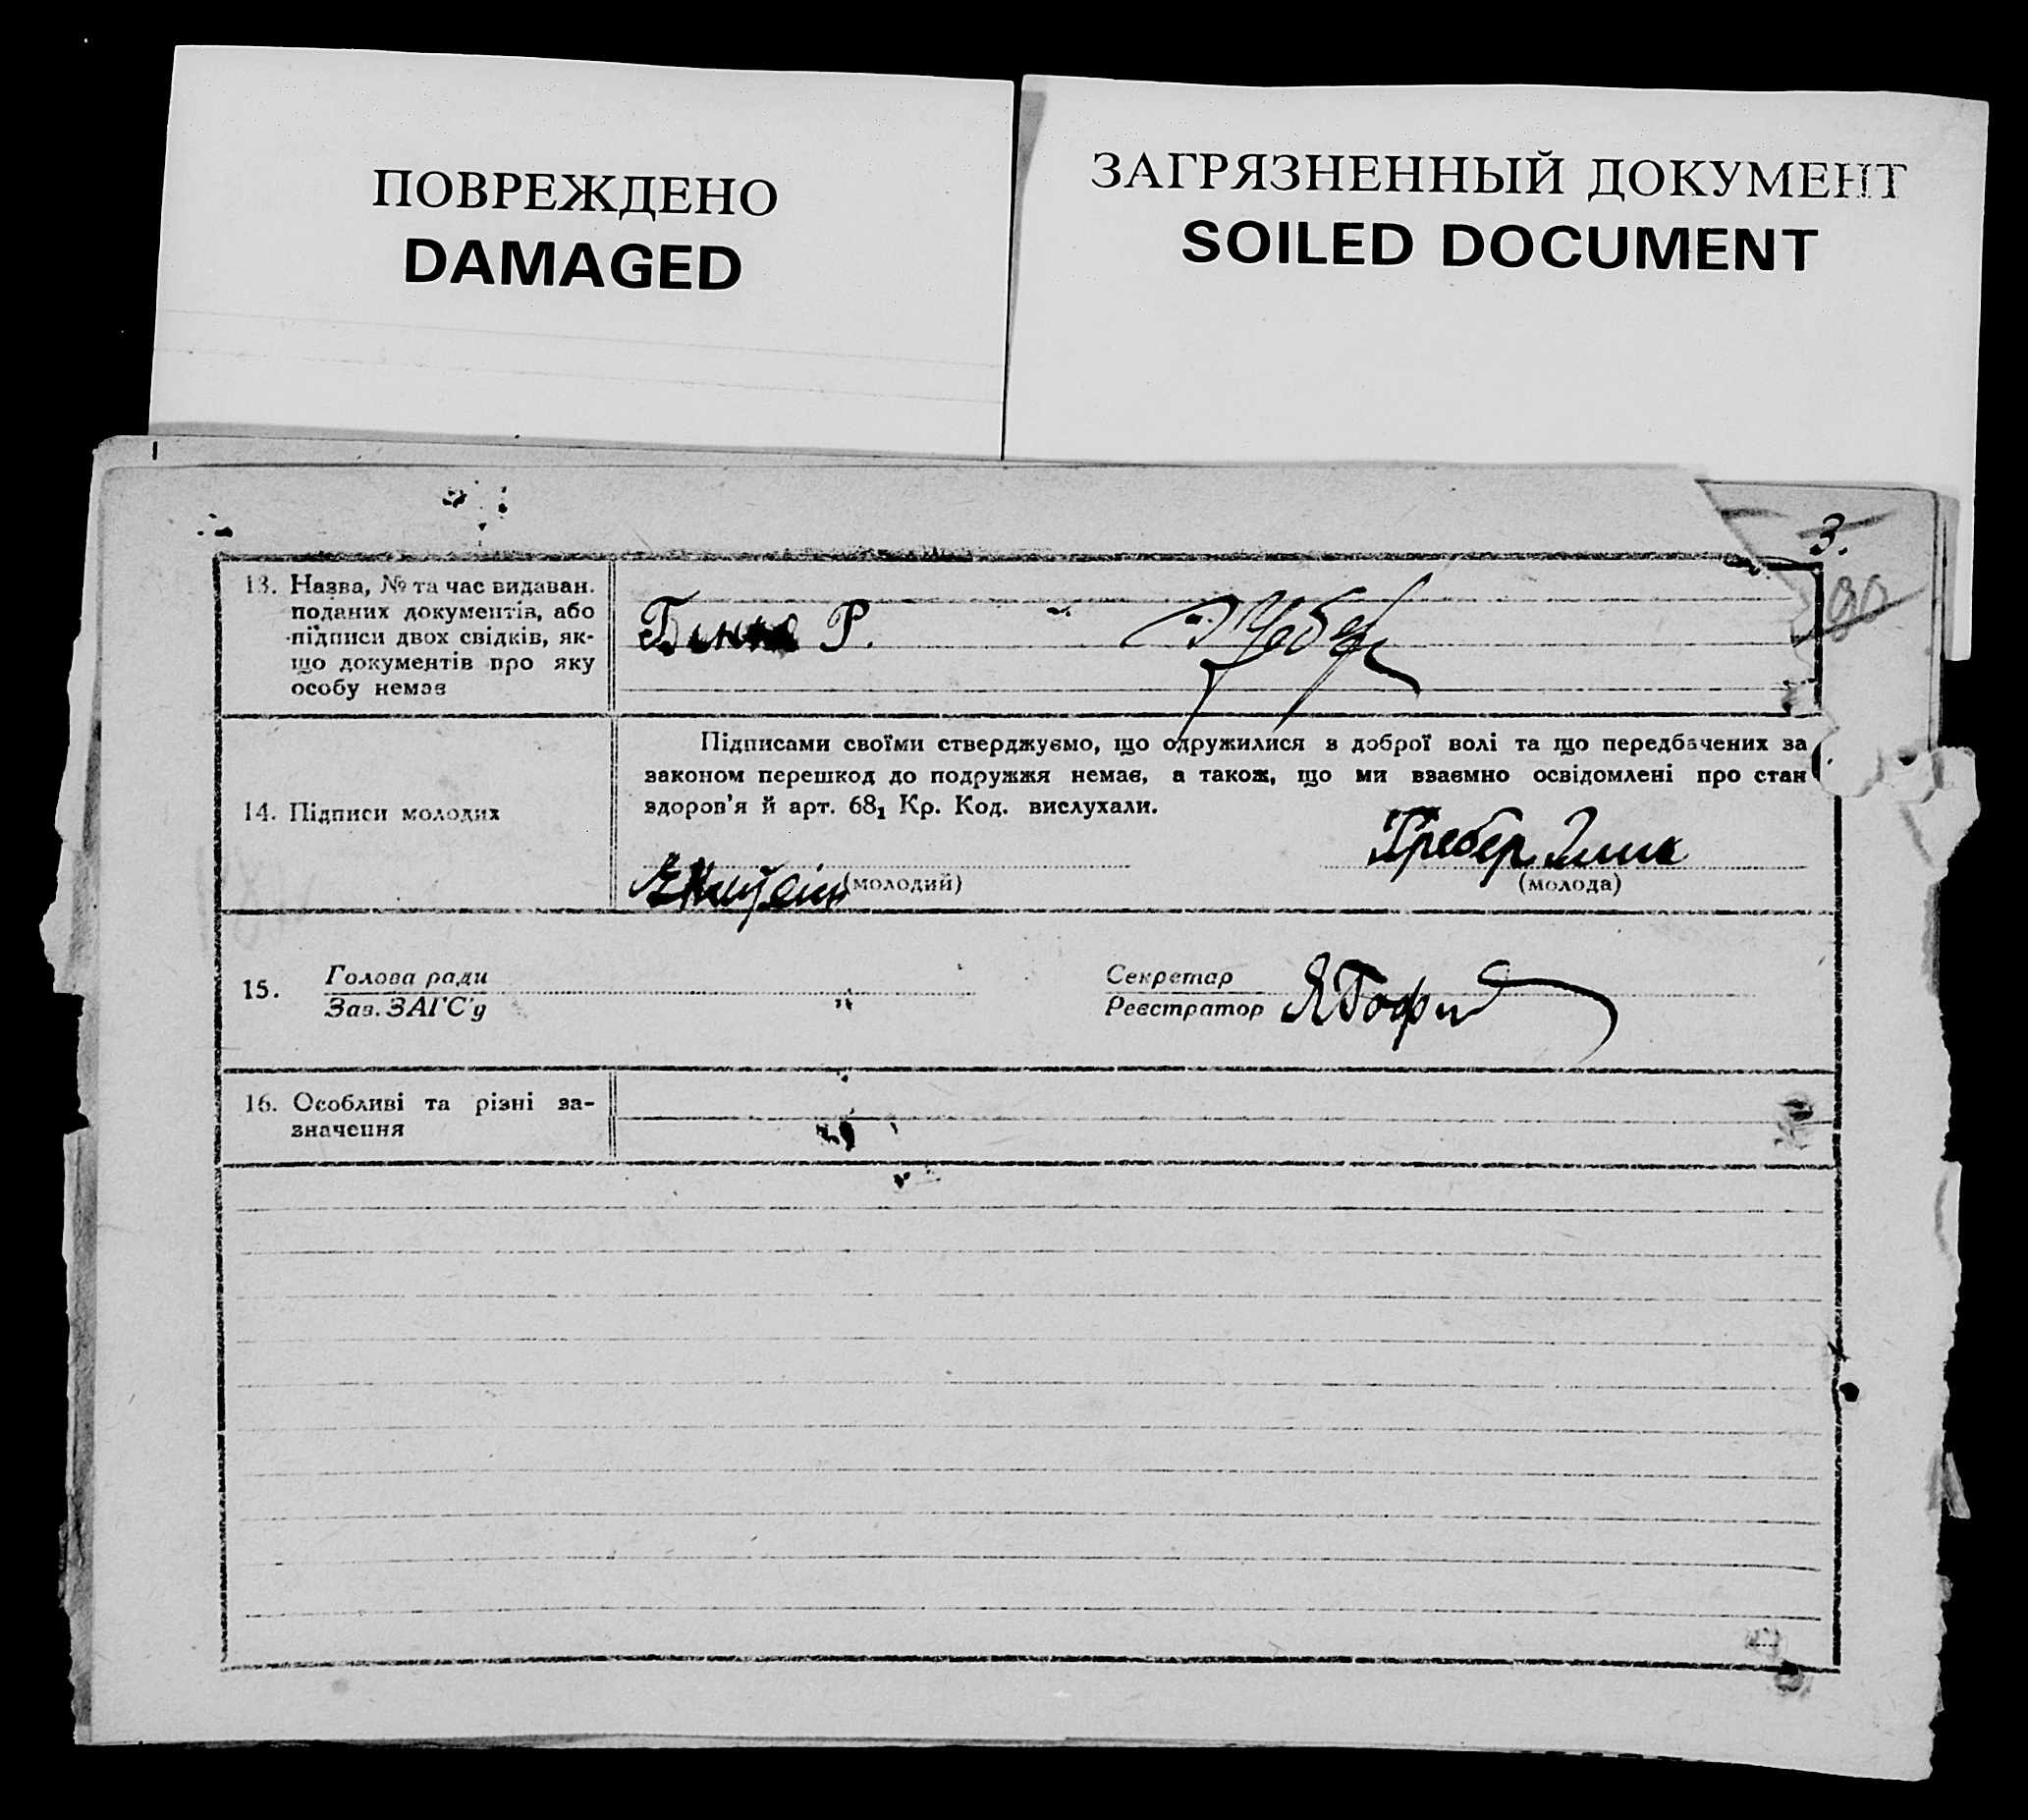 ПОВРЕЖДЕНО
DAMAGED
ЗАГРЯЗНЕННЫЙ ДОКУМЕНТ
SOILED DOCUMENT
3.
13. Назва, № та час видаван.
поданих документів, або
підписи двох свідків, як-
що документів про яку
особу немає
Р.
14. Підписи молодих
Підписами своїми стверджуємо, що одружилися з доброї волі та що передбачених за
законом перешкод до подружжя немає, а також, що ми взаємно освідомлені про стан
здоров'я й арт. 68₁ Кр. Код. вислухали.
Гребер
(молодий)
(молода)
15. Голова ради
Зав. ЗАГС'у
Секретар
Реєстратор
16. Особливі та різні за-
значення